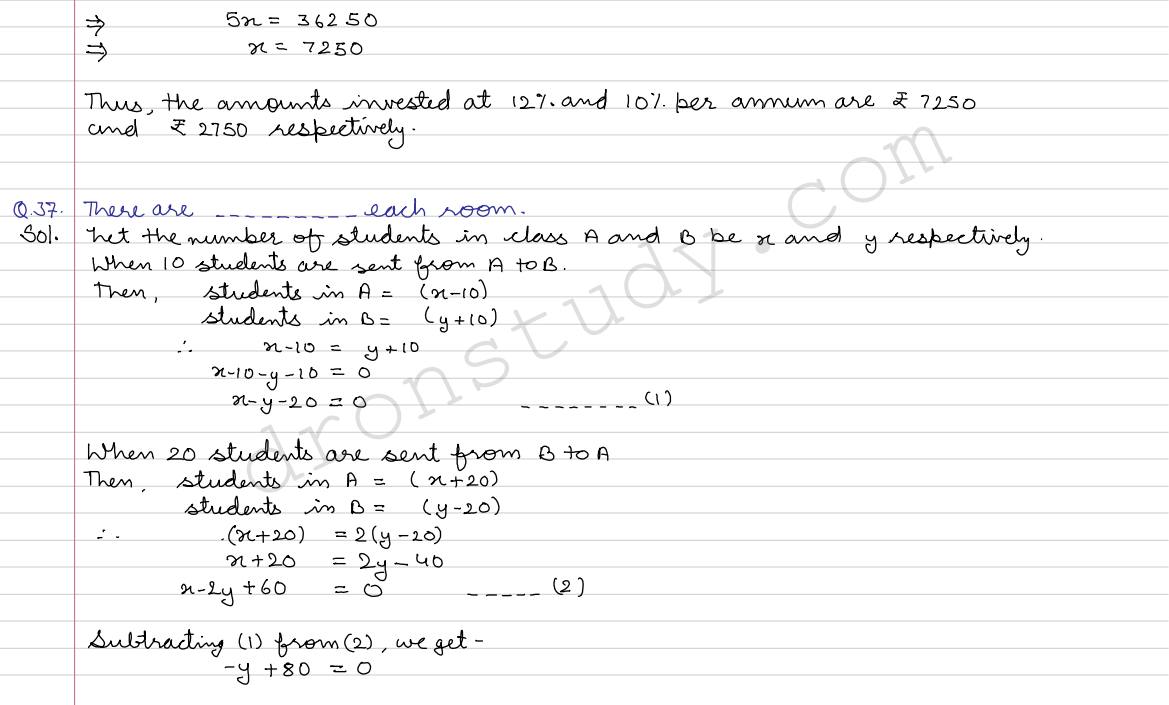 ⇒ 5x = 36250
⇒ x = 7250
Thus, the amounts invested at 12% and 10% per annum are ₹ 7250
and ₹ 2750 respectively.
Q.37. There are __________ each room.
Sol. Let the number of students in class A and B be x and y respectively.
When 10 students are sent from A to B.
Then, students in A = (x-10)
students in B = (y+10)
∴ x-10 = y+10
x-10-y-10 = 0
x-y-20 = 0 ________(1)
When 20 students are sent from B to A
Then, students in A = (x+20)
students in B = (y-20)
∴ (x+20) = 2(y-20)
x+20 = 2y-40
x-2y+60 = 0 _____ (2)
Subtracting (1) from (2), we get -
-y +80 = 0
dronstudy.com